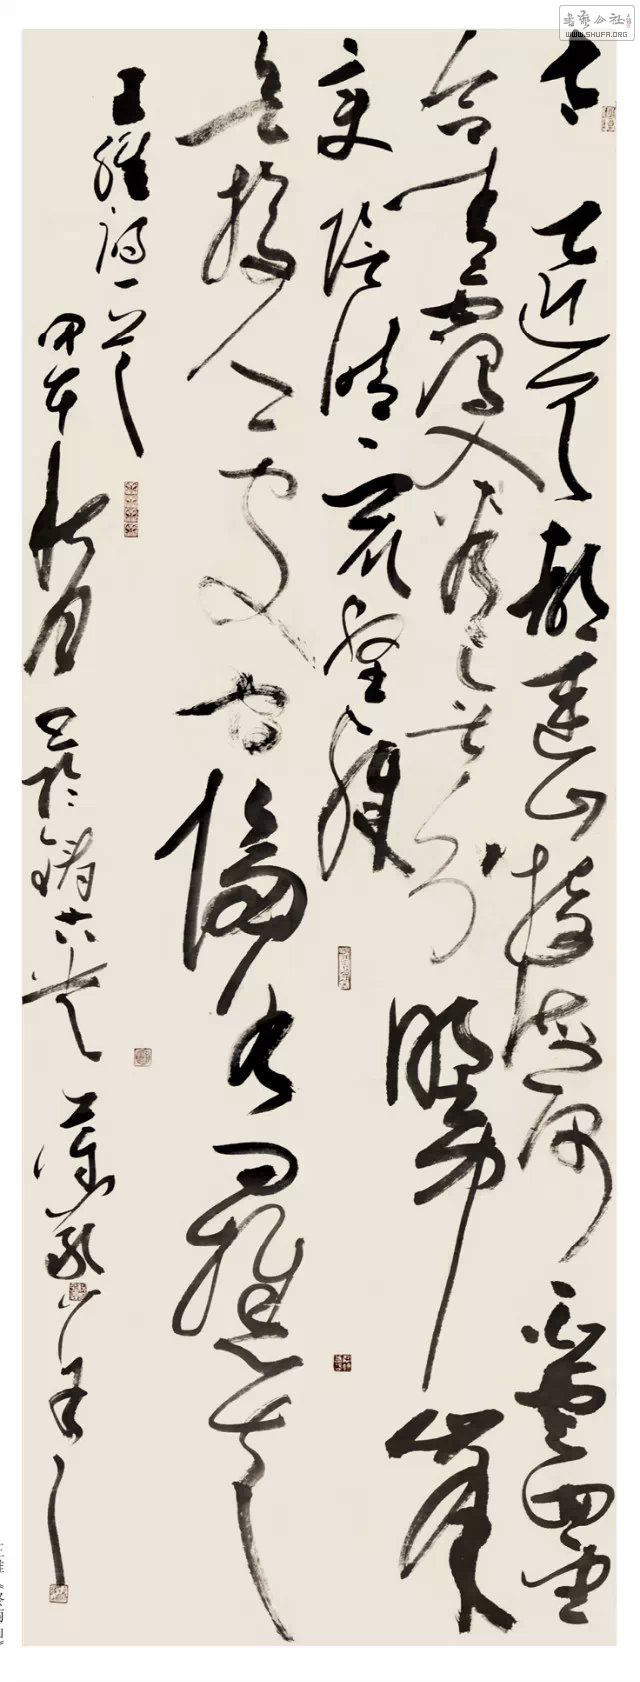 书艺公社
WWW.SHUFA.ORG
太乙近天都連山接海隅白雲回望
合青靄入看無分野中峰
變陰晴眾壑殊
欲投人處宿隔水問樵夫
王維詩一首
甲午秋月